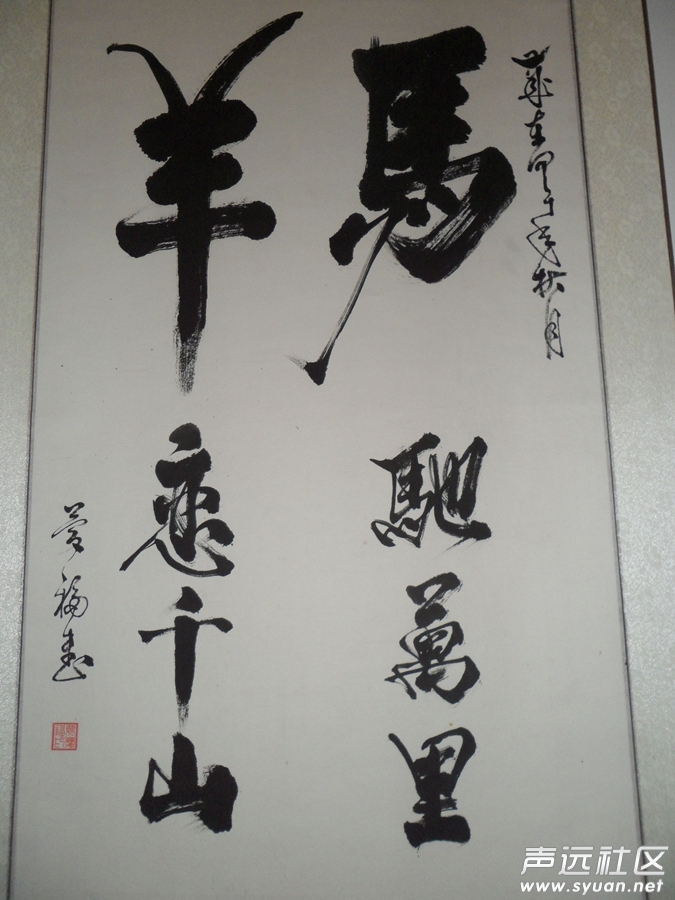 歲在甲午年秋月
馬馳萬里
羊恋千山
福書
声远社区
www.syuan.net